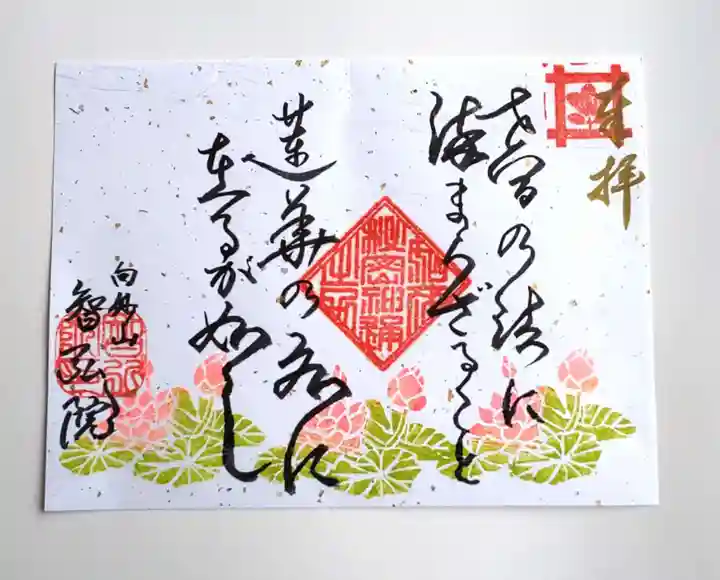 奉拝
世間の法に
染まらざること
蓮華の水に
在るが如し
向妙山
智弘院